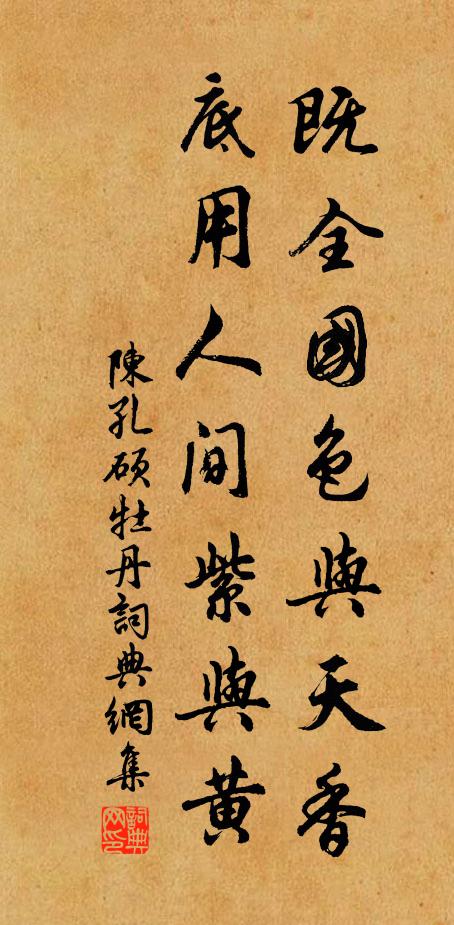 既全國色與天香
底用人間紫與黃
陳孔碩牡丹詞典網集
詞典網印